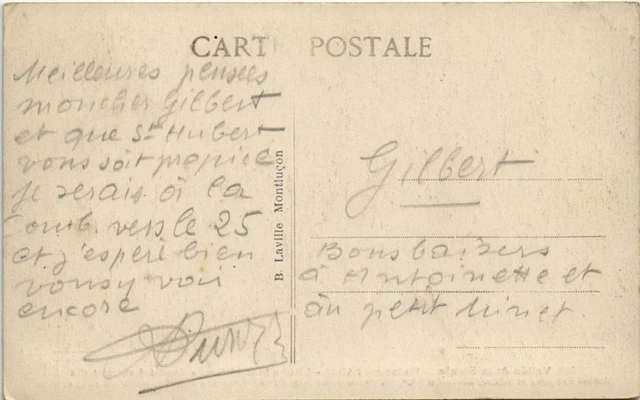 CARTE POSTALE
Meilleures pensées
mon cher Gilbert
et que St Hubert
vous soit propice
je serais à la
Comb. vers le 25
et j'espère bien
vous y voir
encore
B. Laville Montluçon
Gilbert
Bons baisers
à Antoinette et
au petit minet